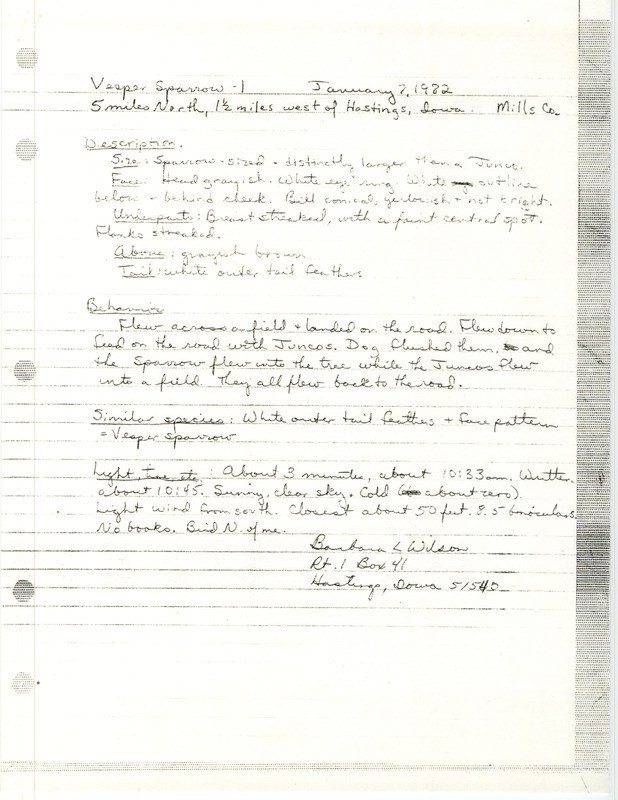 Vesper Sparrow - 1 January 7, 1982
5 miles North, 1½ miles west of Hastings, Iowa. Mills Co.
Description.
Size: Sparrow-sized - distinctly larger than a Junco.
Face: Head grayish. White eye ring. White outline
below + behind cheek. Bill conical, yellowish + not bright.
Underparts: Breast streaked, with a faint central spot.
Flanks streaked.
Above: grayish brown
Tail: white outer tail feathers
Behavior
Flew across a field + landed on the road. Flew down to
feed on the road with Juncos. Dog flushed them, and
the Sparrow flew into the tree while the Juncos flew
into a field. They all flew back to the road.
Similar species: White outer tail feathers + face pattern
= Vesper sparrow
Light, time, etc.: About 3 minutes, about 10:33 am. Written
about 10:45. Sunny, clear sky. Cold (about zero).
Light wind from south. Closest about 50 feet. 8.5 binoculars
No books. Bird N. of me.
Barbara L Wilson
Rt. 1 Box 41
Hastings, Iowa 51540